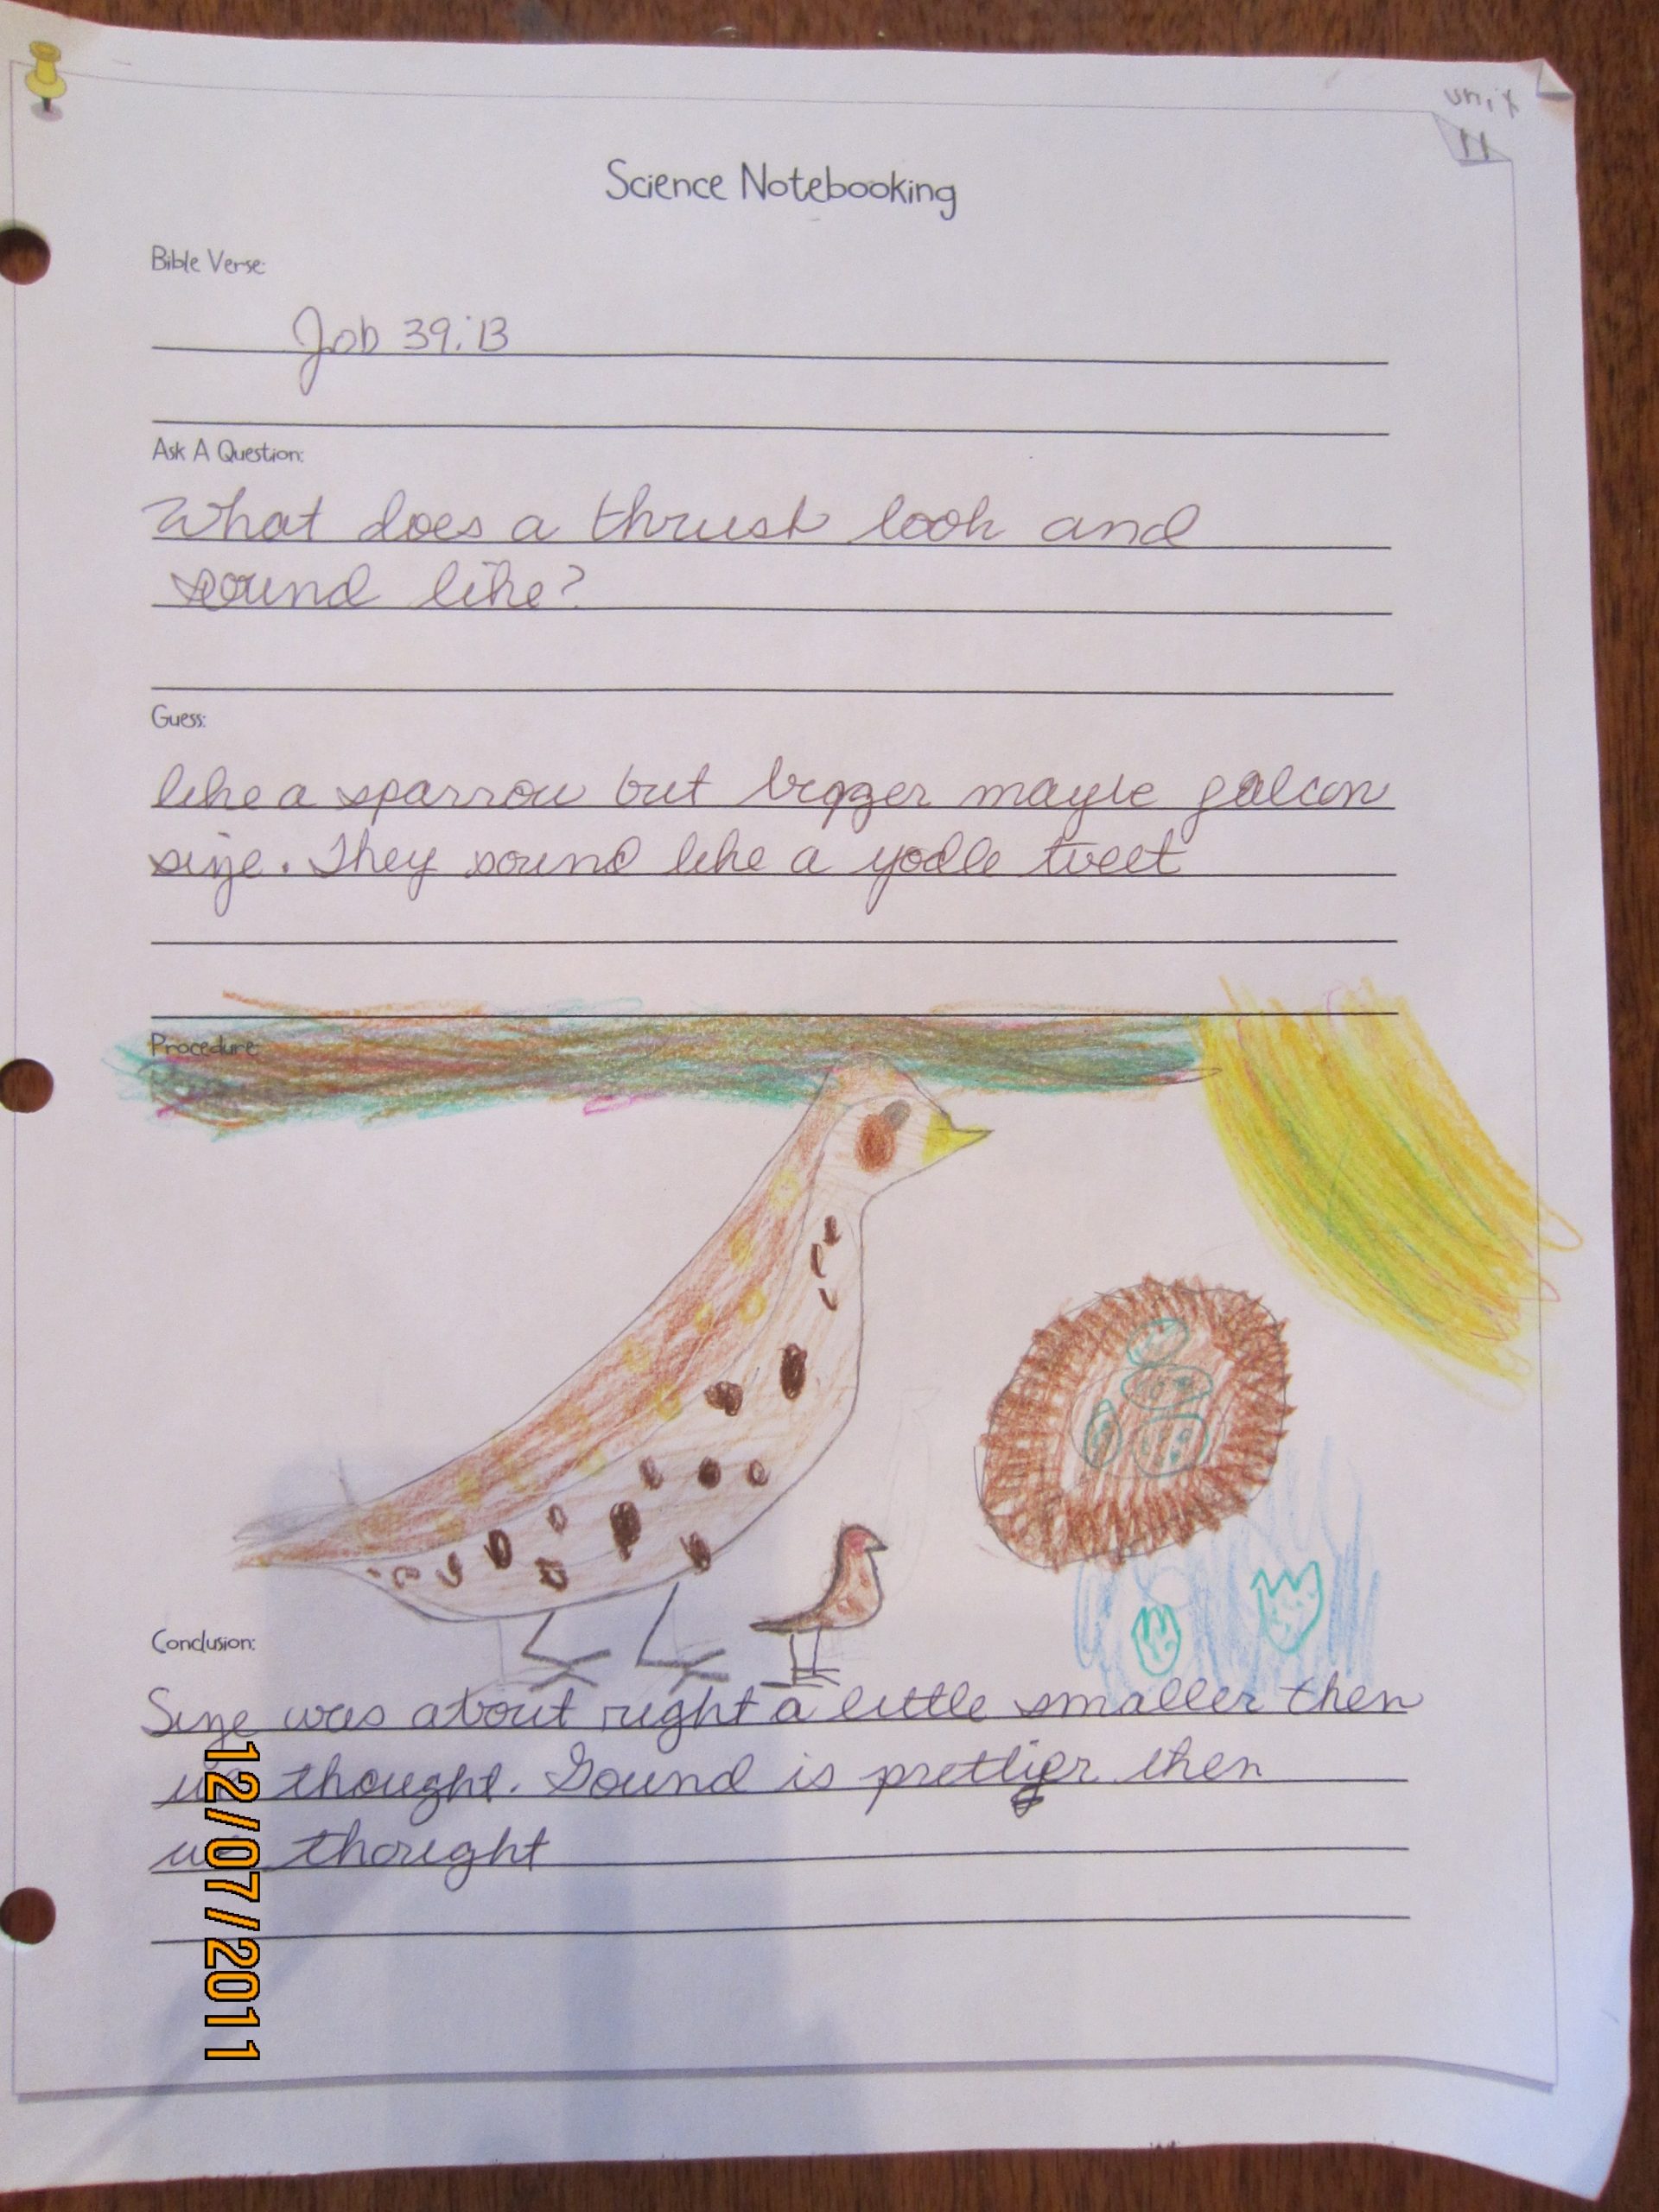 unit
11
Science Notebooking
Bible Verse:
Job 39:13
Ask A Question:
What does a thrust look and
sound like?
Guess:
like a sparrow but bigger maybe falcon
size. They sound like a yodle tweet
Procedure:
Conclusion:
Size was about right a little smaller then
we thought. Sound is prettier then
we thought
12/07/2011